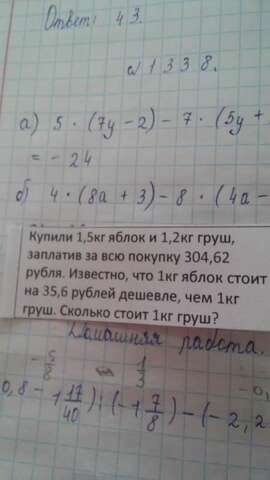 Ответ: 43.
№1338.
а) 5 · (7y - 2) - 7 · (5y +
= - 24
б) 4 · (8a + 3) - 8 · (4a -
Купили 1,5кг яблок и 1,2кг груш,
заплатив за всю покупку 304,62
рубля. Известно, что 1кг яблок стоит
на 35,6 рублей дешевле, чем 1кг
груш. Сколько стоит 1кг груш?
Домашняя работа.
- 5/8 1/3
0,8 - 1 17/40) : (-1 7/8) - (-2,2